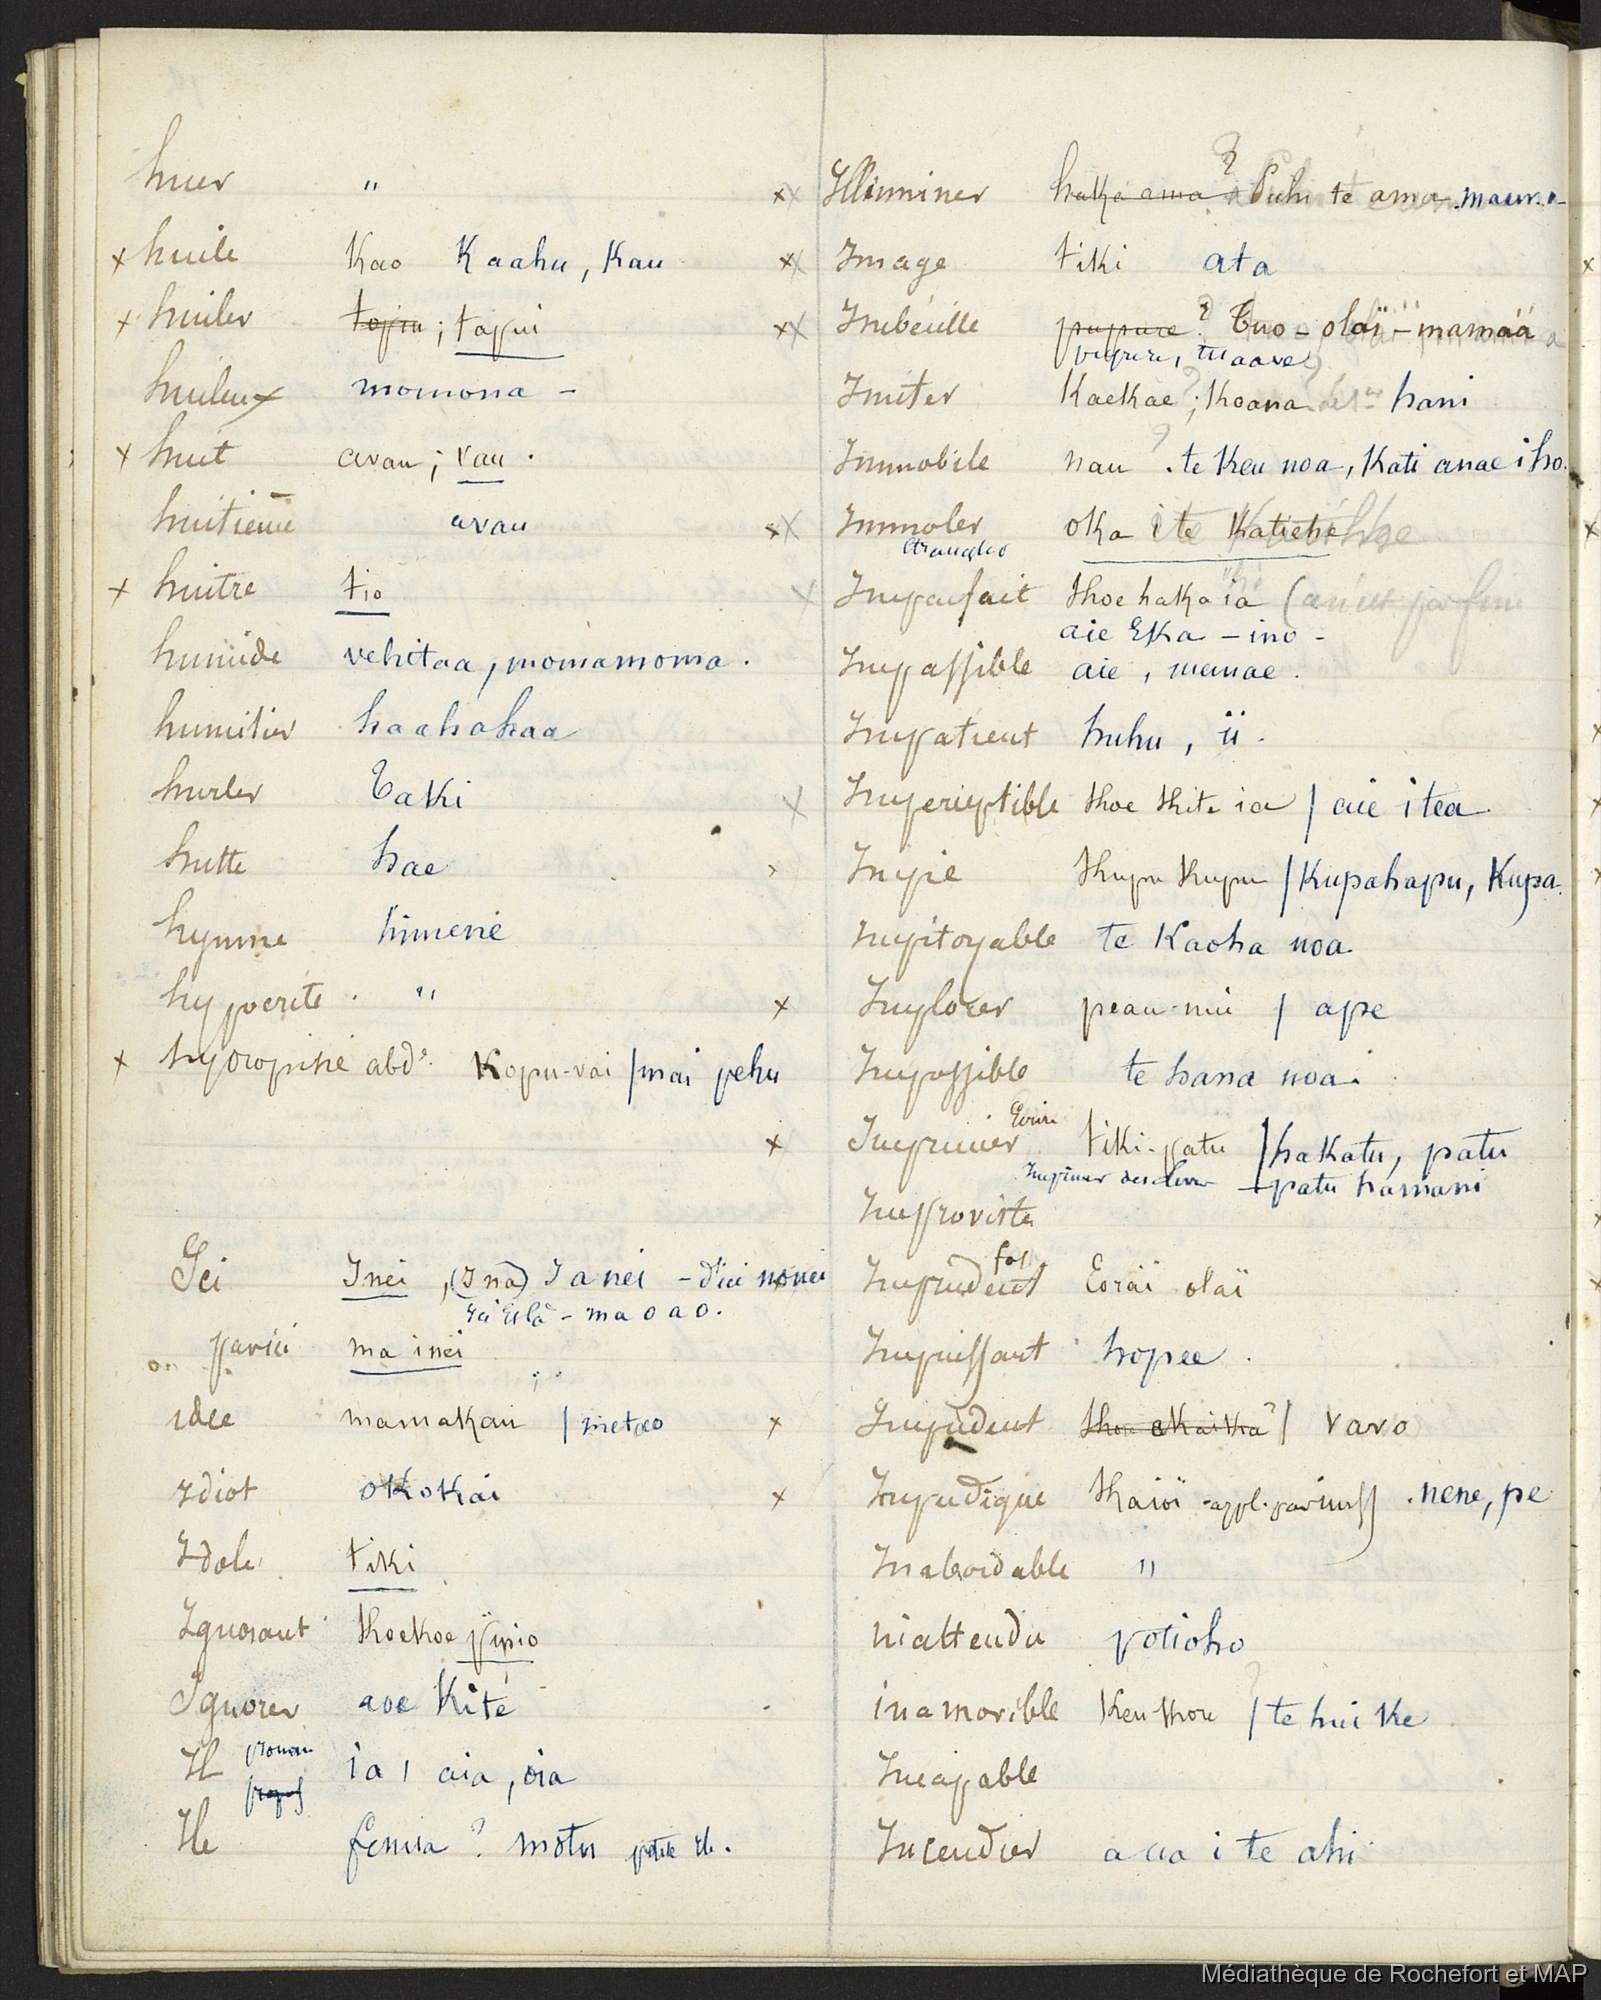 huer "
x huile Kao Kaahu, Kau
x huiler tapiu ; tapui
huileux momona -
x huit avau ; vau .
huitième avau
x huitre tio
humide vehitaa, momamoma .
humilier haahahaa
hurler Taki
hutte hae
hymne himene
hypocrite . "
x hydropisie abde. Kopu-vai / mai pehu
Ici Inei , (Ina) Ianei - d'ici nonei
Ici Et là - ma o a o.
ou par ici ma inei
idée mamakau / metao
Idiot okokai
Idole tiki
Ignorant Khoekoe pipio
Ignorer aoe Kité
Il pronom ia , aia , oia
Ile fenua ? motu petite ile .
x Illuminer haka ama ? Puhi te ama
x Image tiki ata
x Imbécille pupure ? Tuo - olaï - mamaa
pupure, tuaave
Imiter Kaekae ? ; Koana hani
Immobile nau ? . te Keu noa, Kati anae iho.
x Immoler oka i te Katiehe
étrangler
x Imparfait Khoe haka ia
aie Eka - ino -
Impassible aie , memae .
Impatient huhu , ii .
x Imperceptible Khoe Khite ia / aie i tea
x Impie Khupu Khupu / Kupahapu, Kupa
Impitoyable te Kaoha noa
x Implorer peau-mii / ape
Impossible te hana noa .
x Imprimer Ecrire tiki-patu / hakatu, patu
Imprimer des livres - patu hamani
Improviste
Imprudent fol Eoraï olaï
Impuissant hopee .
x Impudent / vavo
x Impudique Khaioï - appl. par inuss . nene, pe
Inabordable "
inattendu potioho
inamovible Keu Khore ? / te hui Ke
Incapable
Incendier a ua i te ahi
Médiathèque de Rochefort et MAP